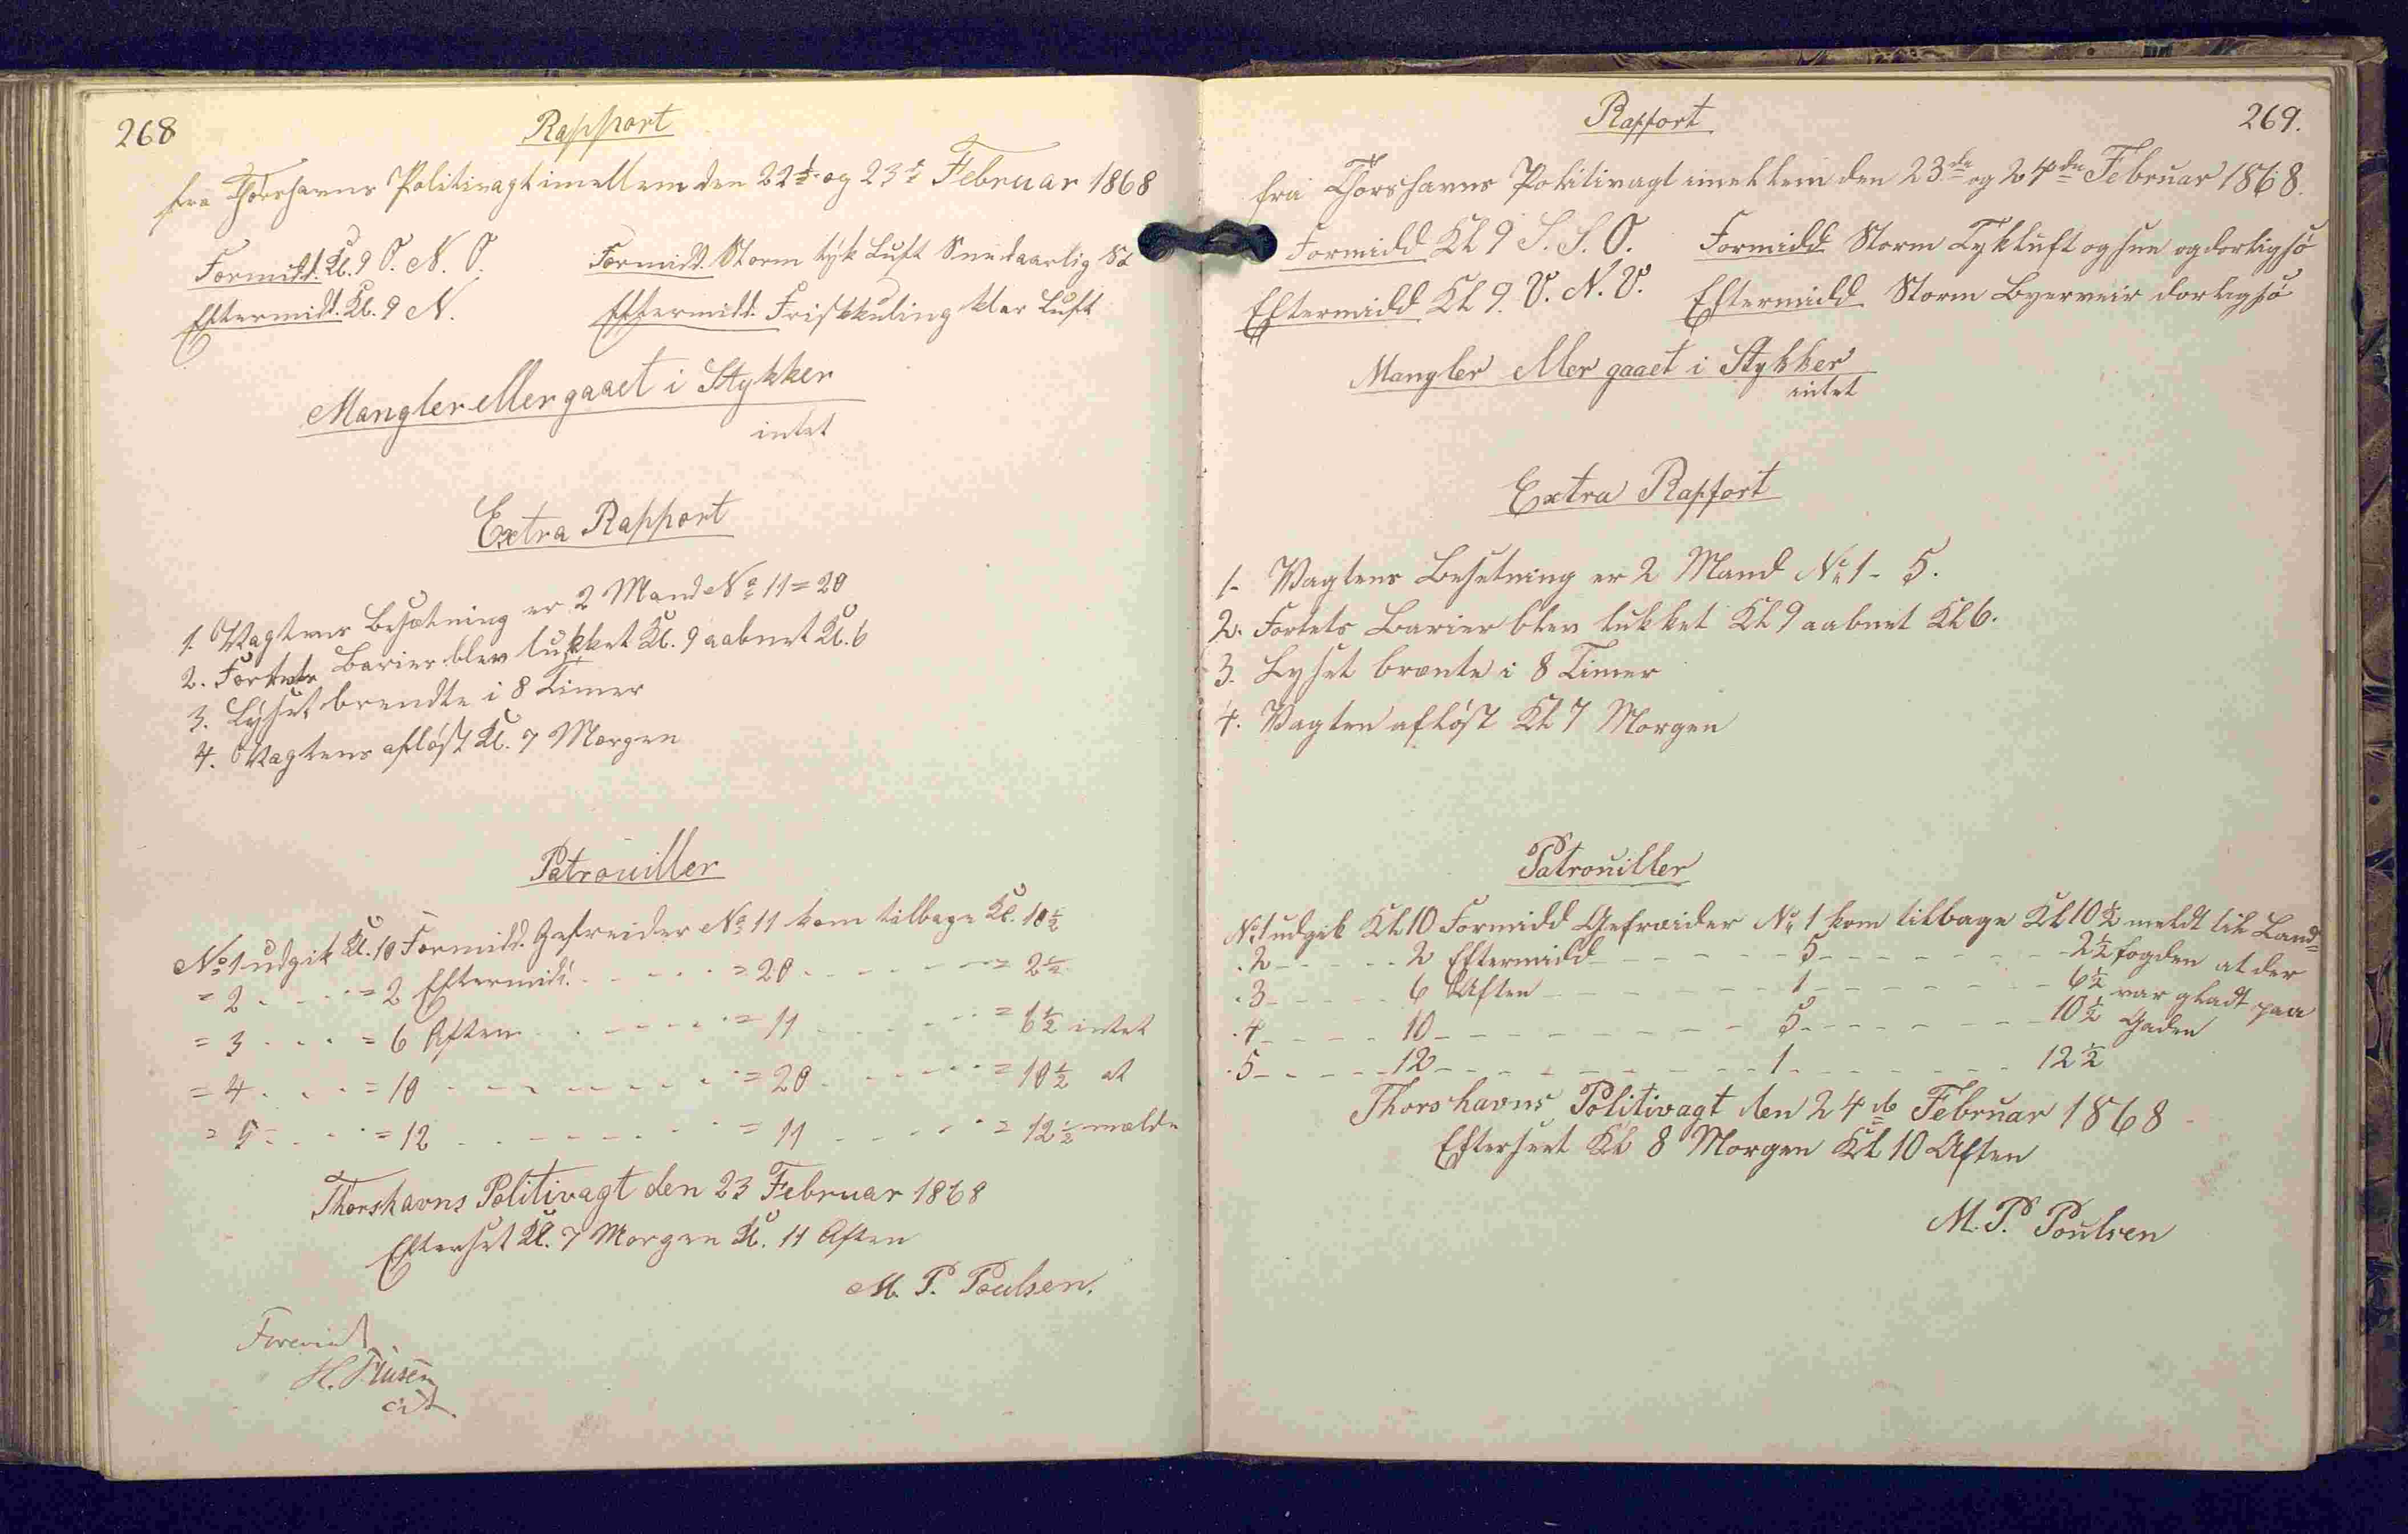 268
Rapport
fra Thorshavns Politivagt imellem den 22 og 23 Februar 1868
Formidd. Kl. 9 O. N. O. Formidd. Storm tyk Luft Snee daarlig Sö
Eftermidd. Kl. 9 N. Eftermidd. Friskkuling klar Luft
Mangler eller gaaet i Stykker
intet
Extra Rapport
1. Vagtens Besætning er 2 Mand No 11 = 20
2. Fortets Barier blev lukket Kl. 9 aabnet Kl. 6
3. Lyset brendte i 8 Timer
4. Vagtens aflöst Kl. 7 Morgen
Patrouiller
No 1 udgik Kl. 10 Formidd. Gefreider No 11 kom tilbage Kl. 10½
= 2 = 2 Eftermidd. = 20 = 2½
= 3 = 6 Aften = 11 = 6½ intet
= 4 = 10 = 20 = 10½ at
= 5 = 12 = 11 = 12½ melde
Thorshavns Politivagt den 23 Februar 1868
Efterset Kl. 7 Morgen Kl. 11 Aften
M. P. Poulsen.
Foreviist
269.
Rapport
fra Thorshavns Politivagt imellem den 23de og 24de Februar 1868.
Formidd Kl 9 S. S. O. Formidd Storm Tykluft og sne og dorligsö
Eftermidd Kl 9. V. N. V. Eftermidd Storm Byerveir dorligsö
Mangler eller gaaet i Stykker
intet
Extra Rapport
1. Vagtens Besetning er 2 Mand No 1 - 5.
2. Fortets Barier blev lukket Kl 9 aabnet Kl 6.
3. Lyset brænte i 8 Timer
4. Vagten aflöst Kl 7 Morgen
Patrouiller
No 1 udgik Kl 10 Formidd Gefreider No 1 kom tilbage Kl 10½ meldt til Land=
. 2 - - - 2 Eftermidd - - - 5 - - - 2½ fogden at der
. 3 - - - 6 Aften - - - 1 - - - 6½ var gladt paa
. 4 - - - 10 - - - 5 - - - 10½ Gaden
. 5 - - - 12 - - - 1 - - - 12½
Thorshavns Politivagt den 24de Februar 1868
Efterseet Kl 8 Morgen Kl 10 Aften
M. P. Poulsen